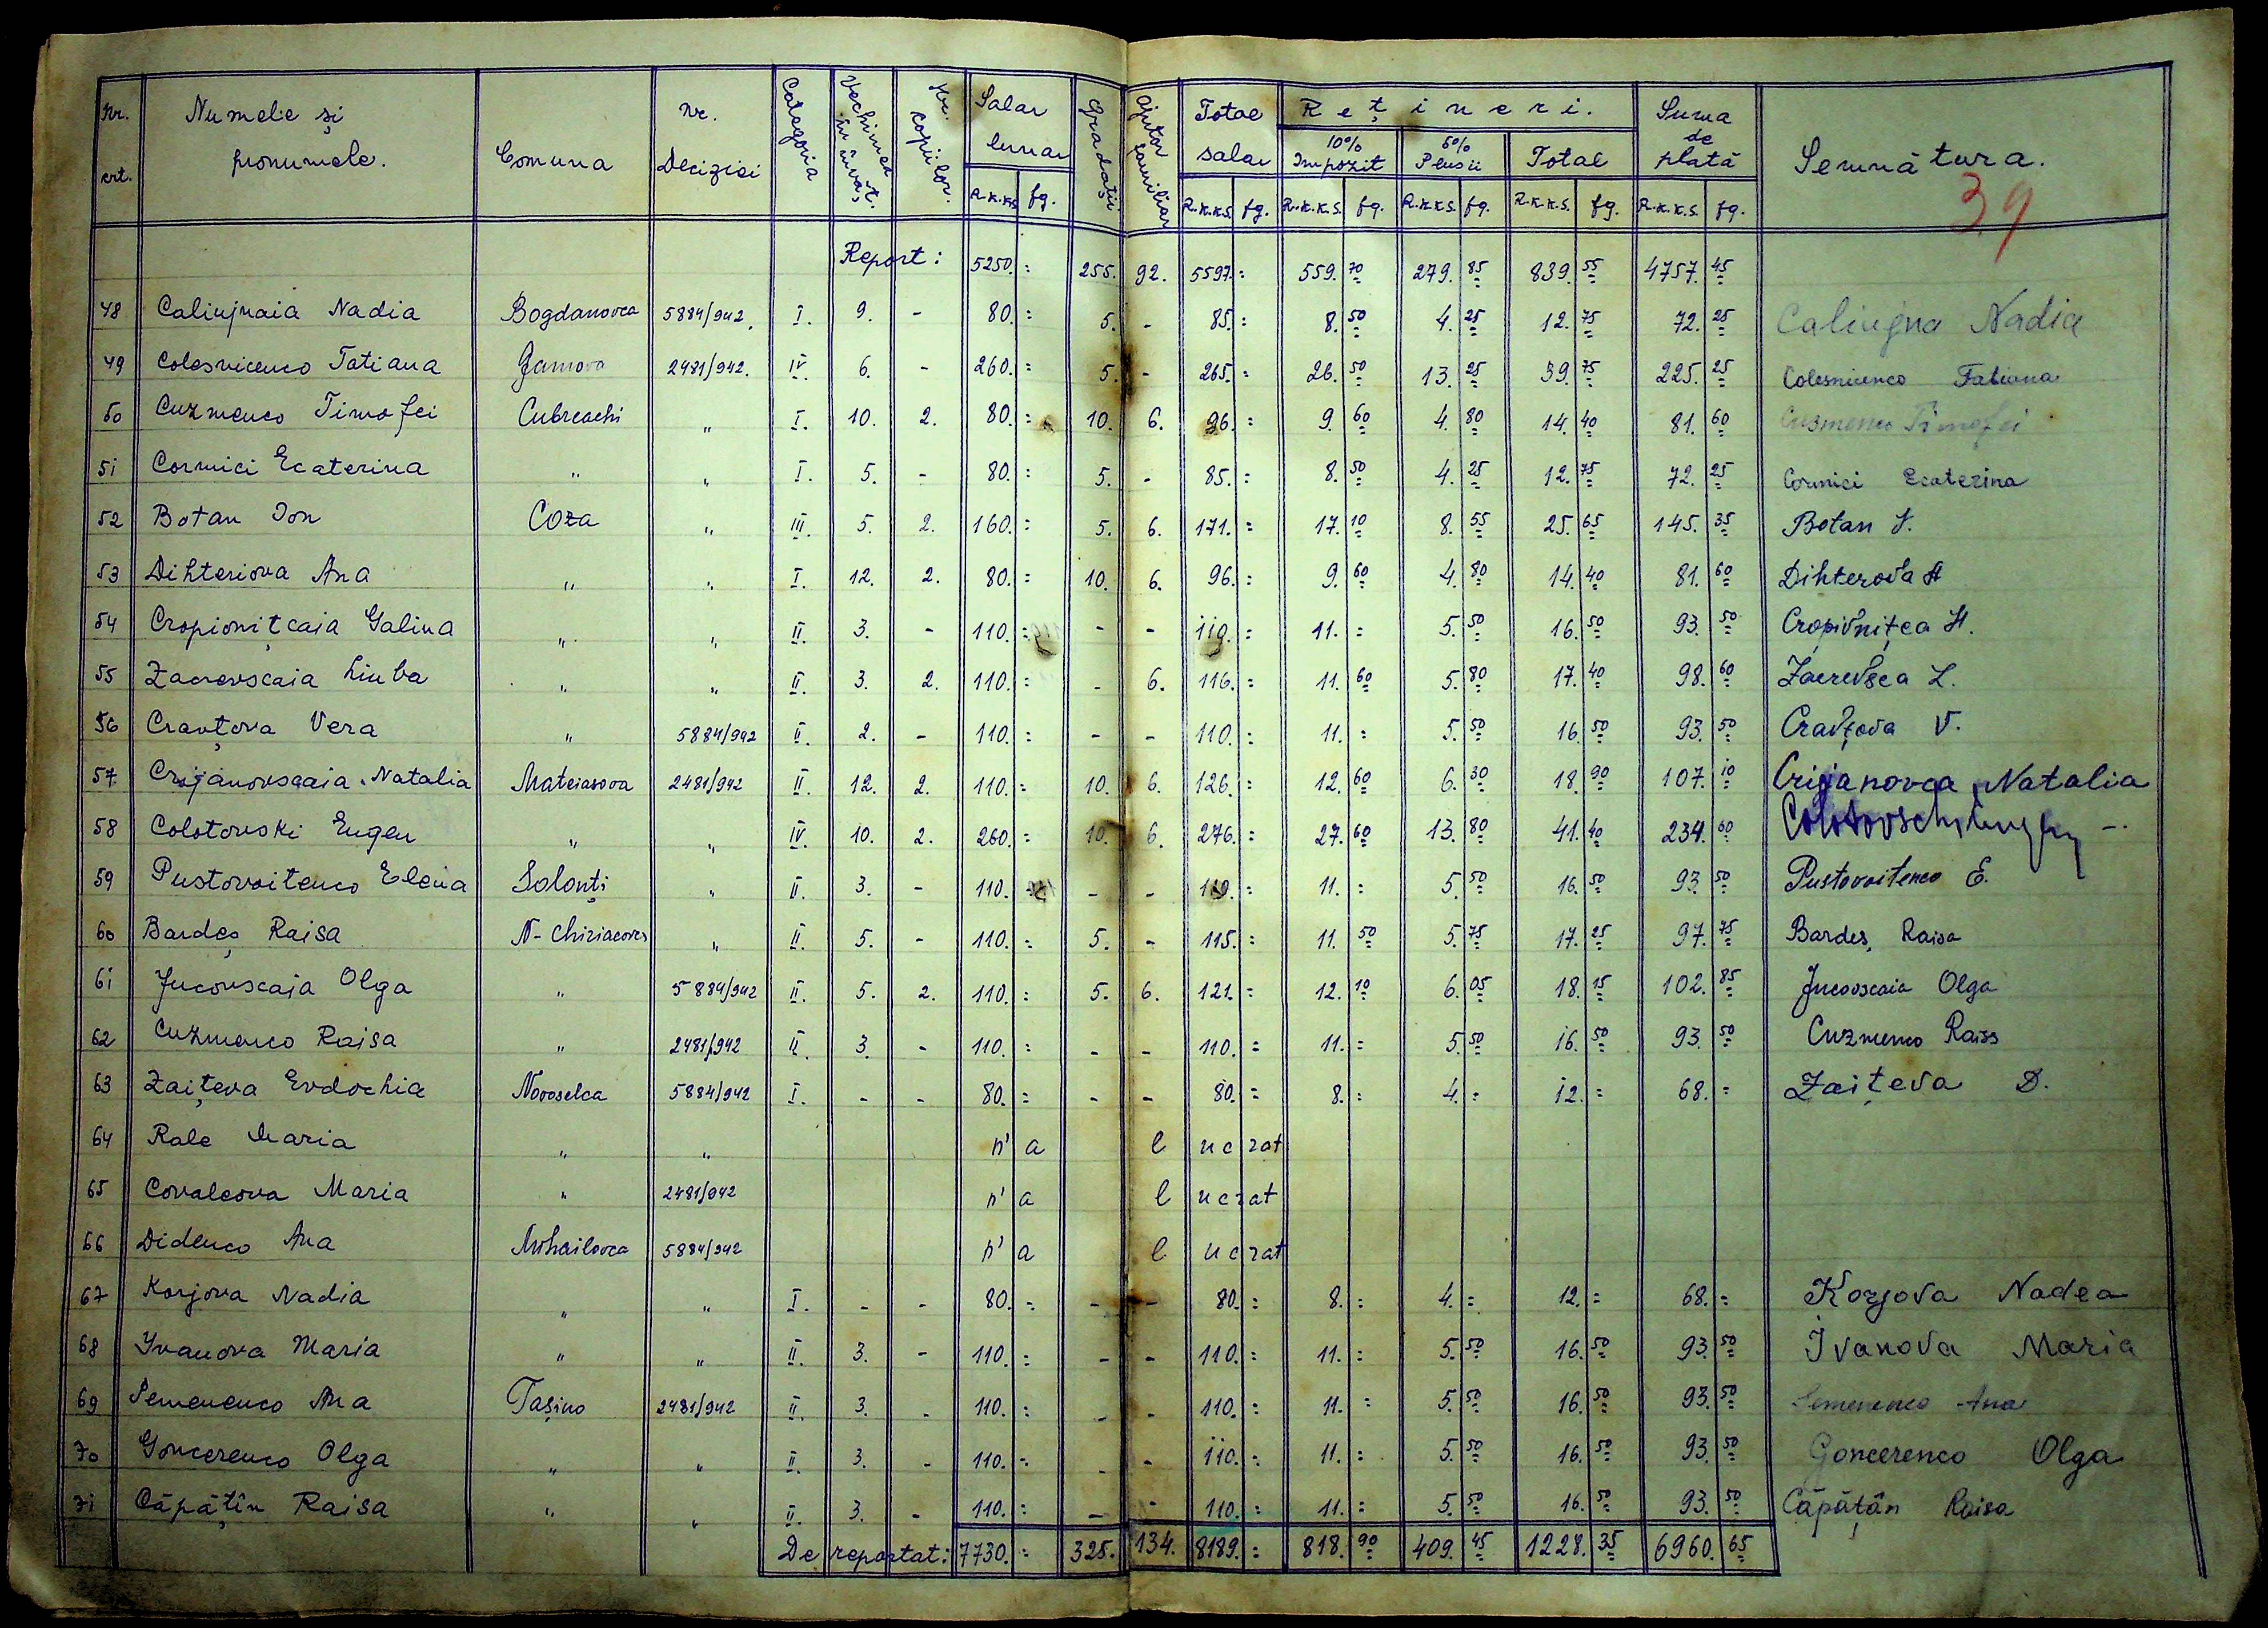 Nr. crt. Numele și pronumele. Comuna Nr. Deciziei Categoria Vechimea în învăț. Nr. copiilor. Salar lunar Gradații Ajutor familiar Total salar Rețineri. Suma de plată Semnătura.
10% Impozit 5% Pensii Total
R.K.K.S. fg. R.K.K.S. fg. R.K.K.S. fg. R.K.K.S. fg. R.K.K.S. fg. R.K.K.S. fg.
39
Report: 5250. = 255. 92. 5597. = 559. 70 279. 85 839. 55 4757. 45
48 Calinjnaia Nadia Bogdanovca 5884/942. I. 9. - 80. = 5. - 85. = 8. 50 4. 25 12. 75 72. 25 Calinjna Nadia
49 Colesnicenco Tatiana Gamova 2481/942. IV. 6. - 260. = 5. - 265. = 26. 50 13. 25 39. 75 225. 25 Colesnicenco Tatiana
50 Cuzmenco Timofei Cubreachi " I. 10. 2. 80. = 10. 6. 96. = 9. 60 4. 80 14. 40 81. 60 Cuzmenco Timofei
51 Cornici Ecaterina " " I. 5. - 80. = 5. - 85. = 8. 50 4. 25 12. 75 72. 25 Cornici Ecaterina
52 Botan Ion Coza " III. 5. 2. 160. = 5. 6. 171. = 17. 10 8. 55 25. 65 145. 35 Botan I.
53 Dihteriova Ana " " I. 12. 2. 80. = 10. 6. 96. = 9. 60 4. 80 14. 40 81. 60 Dihterova A
54 Cropionițcaia Galina " " II. 3. - 110. = - - 110. = 11. = 5. 50 16. 50 93. 50 Cropivnițca H.
55 Zacrevscaia Liuba " " II. 3. 2. 110. = - 6. 116. = 11. 60 5. 80 17. 40 98. 60 Zacrevsca L.
56 Cravțova Vera " 5884/942 II. 2. - 110. = - - 110. = 11. = 5. 50 16. 50 93. 50 Cravțova V.
57 Crijanovscaia Natalia Mateiasova 2481/942 II. 12. 2. 110. = 10. 6. 126. = 12. 60 6. 30 18. 90 107. 10 Crijanovca Natalia
58 Colotovski Eugen " " IV. 10. 2. 260. = 10. 6. 276. = 27. 60 13. 80 41. 40 234. 60 Colotovschi
59 Pustovoitenco Elena Solonți " II. 3. - 110. = - - 110. = 11. = 5. 50 16. 50 93. 50 Pustovoitenco E.
60 Bardeș Raisa N-Chiriacovca " II. 5. - 110. = 5. - 115. = 11. 50 5. 75 17. 25 97. 75 Bardeș Raisa
61 Jucovscaja Olga " 5884/942 II. 5. 2. 110. = 5. 6. 121. = 12. 10 6. 05 18. 15 102. 85 Jucovscaia Olga
62 Cuzmenco Raisa " 2481/942 II. 3. - 110. = - - 110. = 11. = 5. 50 16. 50 93. 50 Cuzmenco Raiss
63 Zaițeva Evdochia Novoselca 5884/942 I. - - 80. = - - 80. = 8. = 4. = 12. = 68. = Zaițeva D.
64 Rale Maria " " n'a lucrat
65 Covaleova Maria " 2481/942 n'a lucrat
66 Didenco Ana Mihailovca 5884/942 n'a lucrat
67 Korjova Nadia " " I. - - 80. = - - 80. = 8. = 4. = 12. = 68. = Korjova Nadea
68 Ivanova Maria " " II. 3. - 110. = - - 110. = 11. = 5. 50 16. 50 93. 50 Ivanova Maria
69 Semenenco Ana Tașino 2481/942 II. 3. - 110. = - - 110. = 11. = 5. 50 16. 50 93. 50 Semenenco Ana
70 Goncerenco Olga " " II. 3. - 110. = - - 110. = 11. = 5. 50 16. 50 93. 50 Goncerenco Olga
71 Căpățîn Raisa " " II. 3. - 110. = - - 110. = 11. = 5. 50 16. 50 93. 50 Căpățân Raisa
De reportat: 7730. = 325. 134. 8189. = 818. 90 409. 45 1228. 35 6960. 65